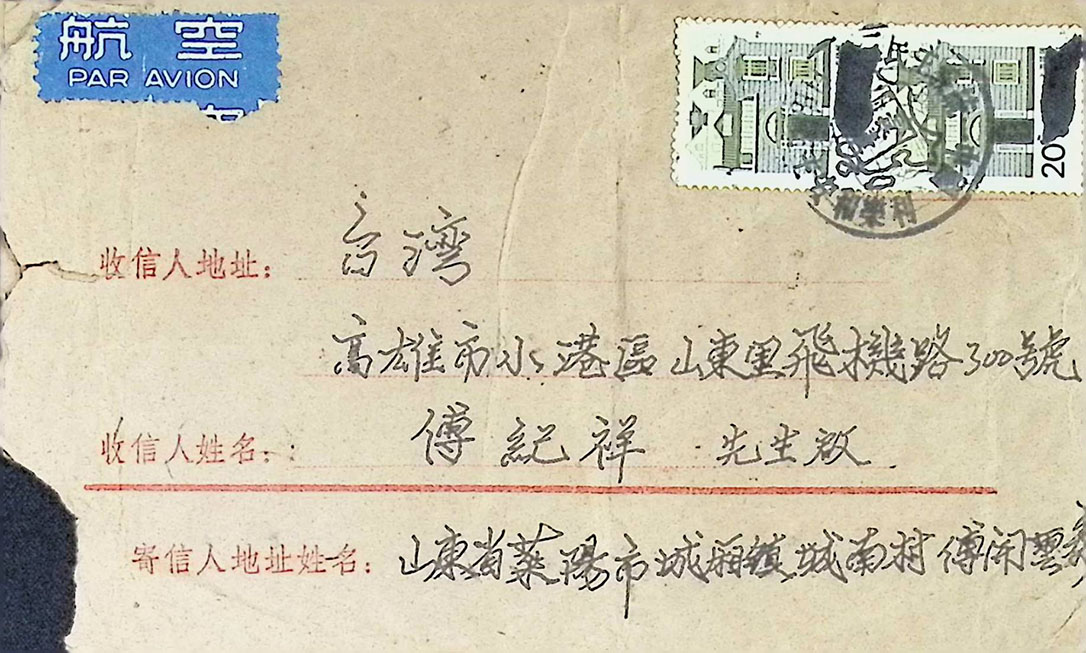 航空
PAR AVION
20
收信人地址：台湾
高雄市小港區山東里飛機路300號
收信人姓名：傅紀祥 先生啟
寄信人地址姓名：山東省萊陽市城厢镇城南村傅闲雲